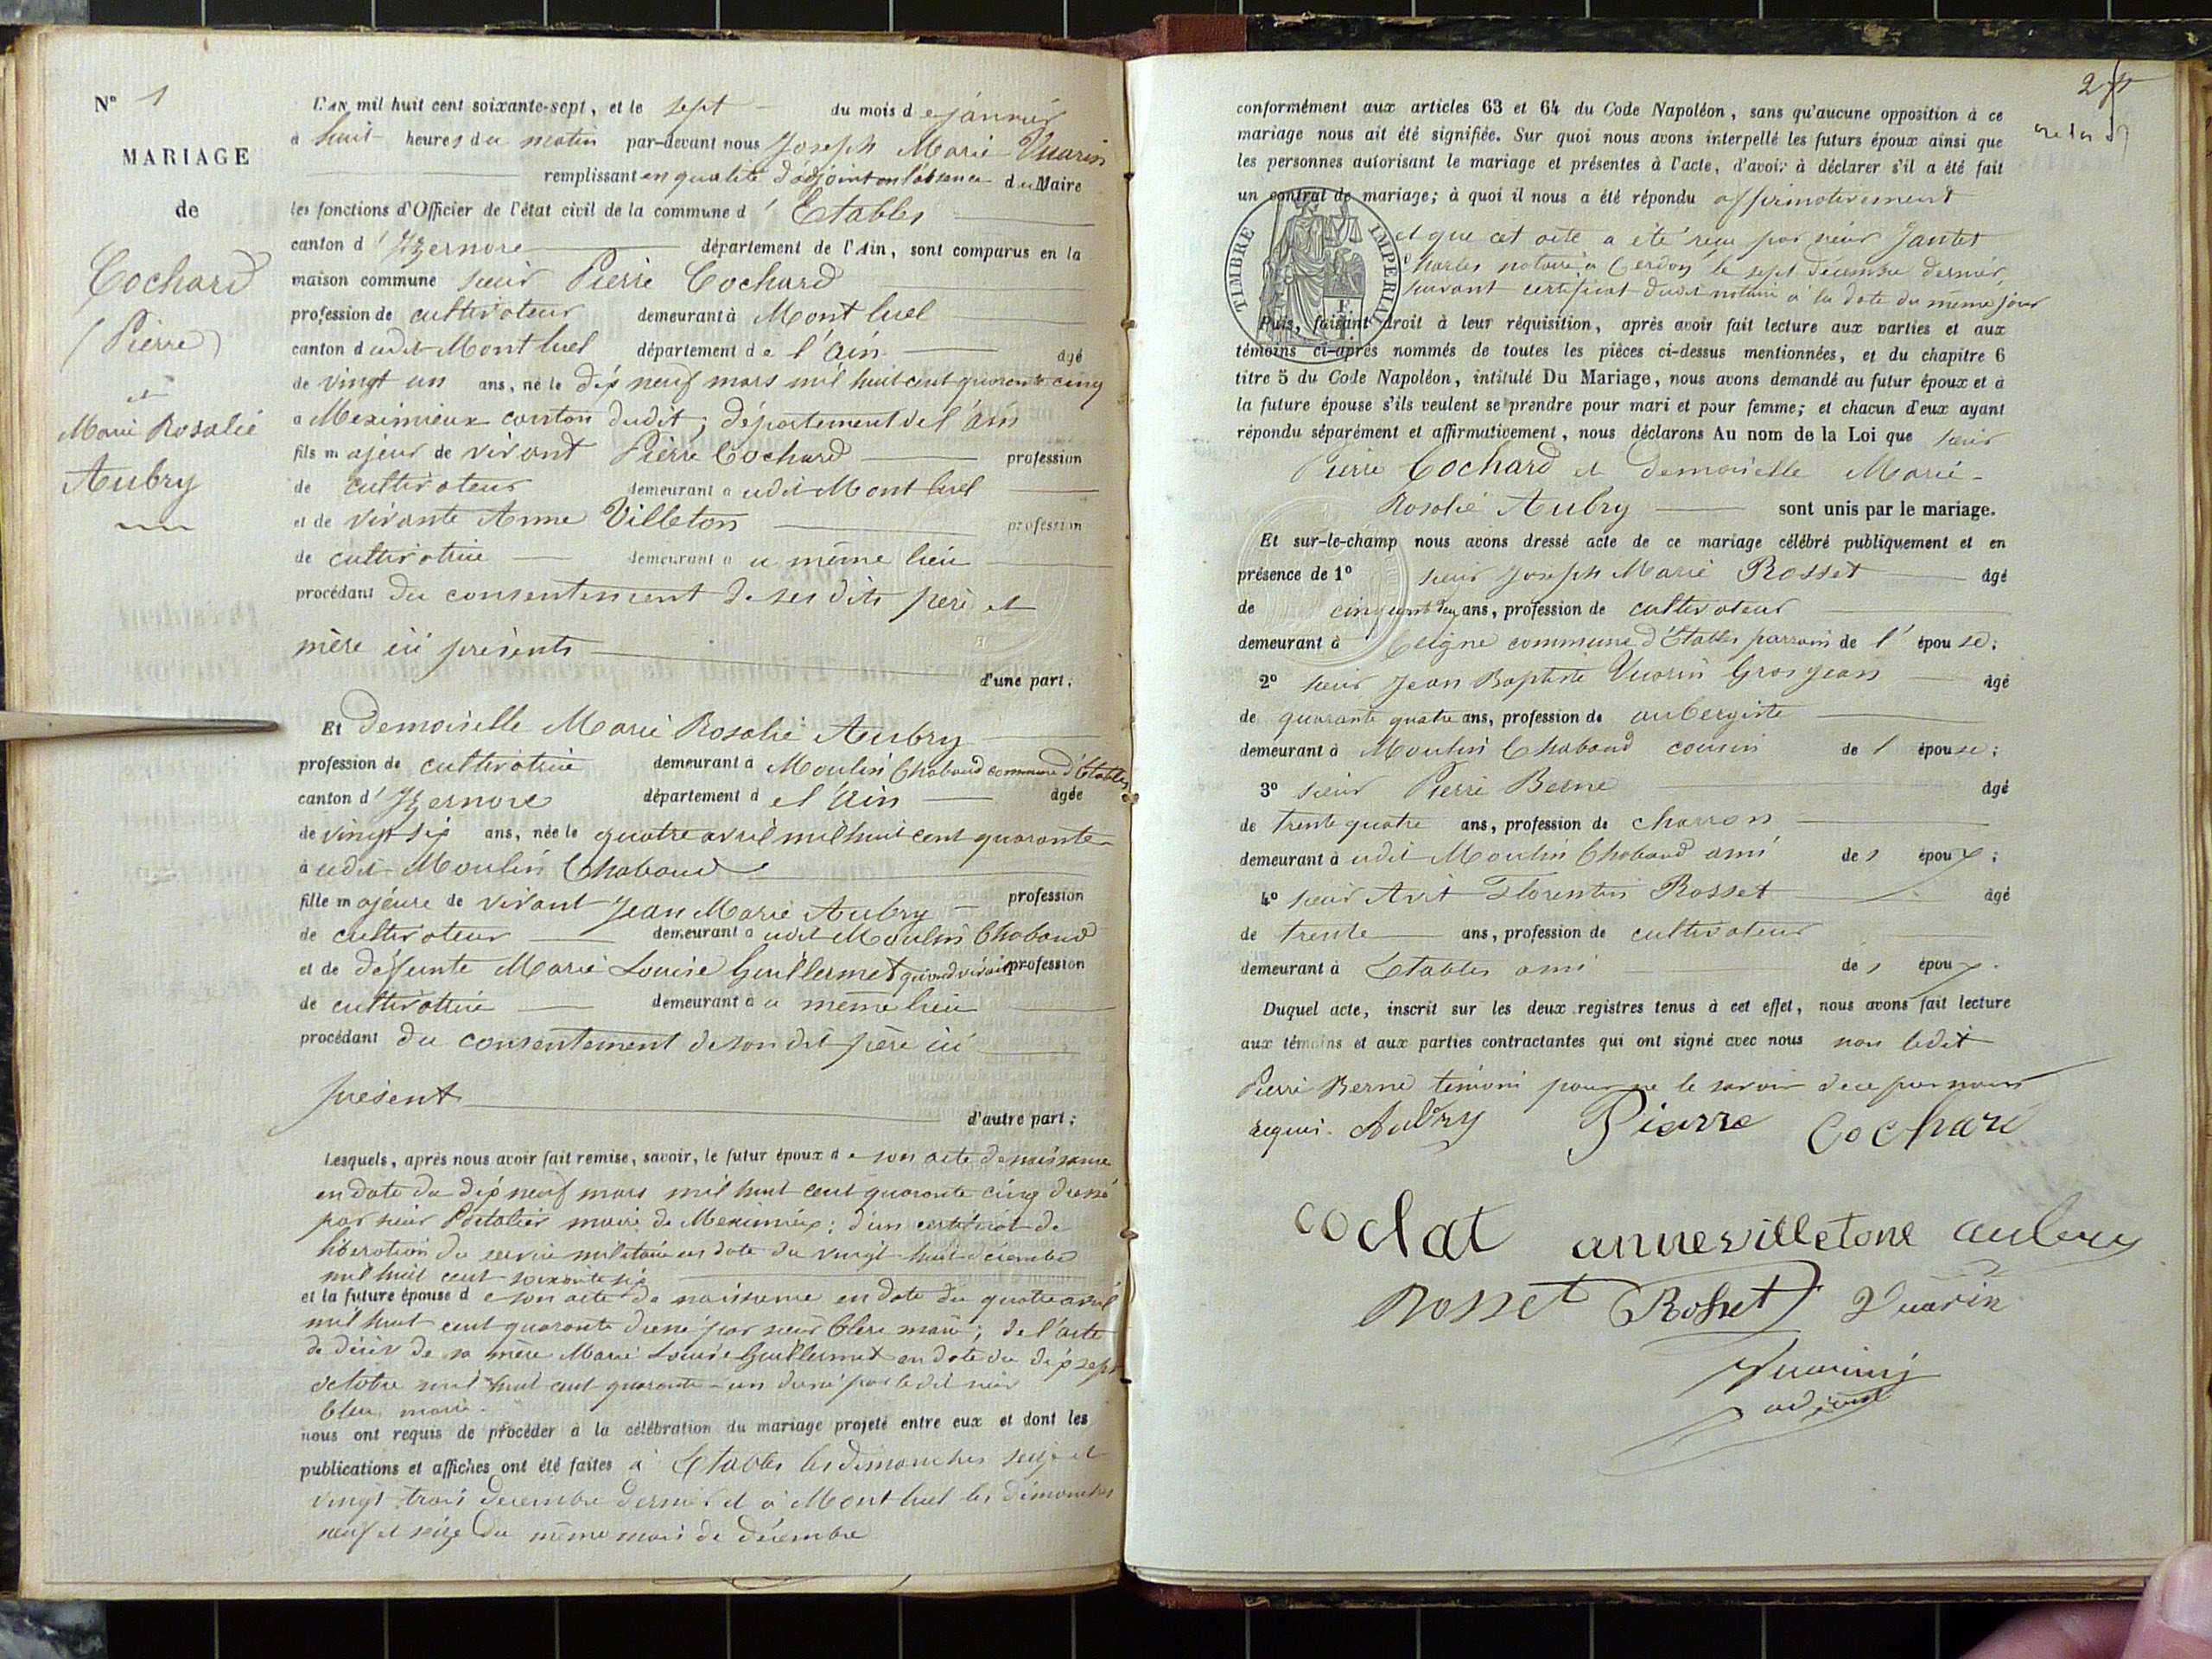 N° 1
MARIAGE
de
Cochard
(Pierre)
et
Marie Rosalie
Aubry
L'AN mil huit cent soixante-sept, et le sept du mois de janvier
à huit heures du matin par-devant nous Joseph Marie Vuarin
remplissant en qualité d'adjoint en l'absence du Maire
les fonctions d'Officier de l'état civil de la commune d'Etables
canton d'Yzernore département de l'Ain, sont comparus en la
maison commune sieur Pierre Cochard
profession de cultivateur demeurant à Montluel
canton dudit Montluel département de l'ain âgé
de vingt un ans, né le dix neuf mars mil huit cent quarante cinq
a Meximieux canton dudit, département de l'ain
fils majeur de vivant Pierre Cochard profession
de cultivateur demeurant audit Montluel
et de vivante Anne Villeton profession
de cultivatrice demeurant au même lieu
procédant du consentement de ses dits père et
mère ici présents
d'une part;
Et demoiselle Marie Rosalie Aubry
profession de cultivatrice demeurant à Moulin Chabaud commune d'Etables
canton d'Yzernore département de l'ain âgée
de vingt six ans, née le quatre avril mil huit cent quarante
audit Moulin Chabaud
fille majeure de vivant Jean Marie Aubry profession
de cultivateur demeurant audit Moulin Chabaud
et de deffunte Marie Louise Guillermet quand vivait profession
de cultivatrice demeurant au même lieu
procédant du consentement de son dit père ici
présent
d'autre part;
Lesquels, après nous avoir fait remise, savoir, le futur époux de son acte de naissance
en date du dix neuf mars mil huit cent quarante cinq dressé
par sieur maire de Meximieux; d'un certificat de
libération du service militaire en date du vingt huit décembre
mil huit cent soixante six
et la future épouse de son acte de naissance en date du quatre avril
mil huit cent quarante dressé par sieur Clere maire; de l'acte
de décès de sa mère Marie Louise Guillermet en date du dix sept
octobre mil huit cent quarante-un dressé par ledit sieur
Clere maire.
nous ont requis de procéder à la célébration du mariage projeté entre eux et dont les
publications et affiches ont été faites à Etables les dimanches seize et
vingt trois decembre dernier et à Montluel les dimanches
neuf et seize du même mois de décembre
conformément aux articles 63 et 64 du Code Napoléon, sans qu'aucune opposition à ce
mariage nous ait été signifiée. Sur quoi nous avons interpellé les futurs époux ainsi que
les personnes autorisant le mariage et présentes à l'acte, d'avoir à déclarer s'il a été fait
un contrat de mariage; à quoi il nous a été répondu affirmativement
TIMBRE IMPERIAL
et que cet acte a été reçu par sieur Jantet
Charles notaire à Cerdon le sept décembre dernier
suivant certificat dudit notaire à la date du même jour
Puis, faisant droit à leur réquisition, après avoir fait lecture aux parties et aux
témoins ci-après nommés de toutes les pièces ci-dessus mentionnées, et du chapitre 6
titre 5 du Code Napoléon, intitulé Du Mariage, nous avons demandé au futur époux et à
la future épouse s'ils veulent se prendre pour mari et pour femme; et chacun d'eux ayant
répondu séparément et affirmativement, nous déclarons Au nom de la Loi que sieur
Pierre Cochard et demoiselle Marie-
Rosalie Aubry sont unis par le mariage.
Et sur-le-champ nous avons dressé acte de ce mariage célébré publiquement et en
présence de 1° sieur Joseph Marie Rosset âgé
de cinquante ans, profession de cultivateur
demeurant à Ceigne commune d'Etables parrain de l'épouse;
2° sieur Jean Baptiste Vuarin Grosjean âgé
de quarante quatre ans, profession de aubergiste
demeurant à Moulin Chabaud cousin de l'épouse;
3° sieur Pierre Berne âgé
de trente quatre ans, profession de charron
demeurant audit Moulin Chabaud ami des époux;
4° sieur Avit Florentin Rosset âgé
de trente ans, profession de cultivateur
demeurant à Etables ami des époux.
Duquel acte, inscrit sur les deux registres tenus à cet effet, nous avons fait lecture
aux témoins et aux parties contractantes qui ont signé avec nous non ledit
Pierre Berne témoin pour ne le savoir de ce par nous
requis. Aubry Pierre Cochard
annevilletone aubry
Rosset Rosset Vuarin
Vuarin
adjoint